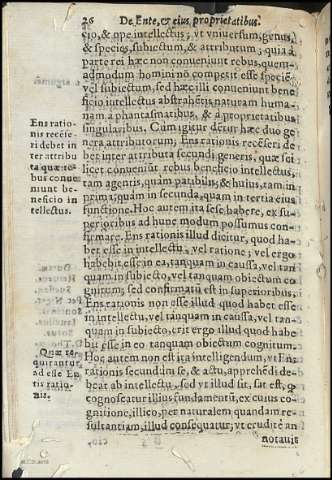 26 De Ente, & eius proprietatibus.
cio, & ope intellectus; vt vniuersum, genus,
& species, subiectum, & attributum; quia à
parte rei hæc non conueniunt rebus, quem-
admodum homini nõ competit esse specie
vel subiectum, sed hæc illi conueniunt bene
ficio intellectus abstrahẽtis naturam huma-
nam à phantasmatibus, & à proprietatibus
singularibus. Cum igitur detur hæc duo ge
nera attributorum; Ens rationis recẽseri de
ber inter attributa secundi generis, quæ sci
licet conueniũt rebus beneficio intellectus,
tam agentis, quàm patibilis; & huius, tam in
prima, quàm in secunda, quàm in tertia eius
functione. Hoc autem ita sese habere, ex su
perioribus ad hunc modum possumus con-
firmare. Ens rationis illud dicitur, quod ha-
bet esse in intellectu, vel ratione; vel ergo
habebit esse in ea, tanquam in caussa, vel tan
quam in subiecto, vel tanquam obiectum co
gnitum; sed confirmatũ est in superioribus,
Ens rationis non esse illud quod habet esse
in intellectu, vel tanquam in caussa, vel tan-
quàm in subiecto, erit ergo illud quod habe
bit esse in eo tanquàm obiectum cognitum.
Hoc autem non est ita intelligendum, vt Ens
rationis secundùm se, & actu, apprehẽdi de-
beat ab intellectu, sed vt illud sit, sat est, q
cognoscatur illius fundamentũ, ex cuius co-
gnitione, illico, per naturalem quandam re-
sultantiam, illud consequatur; vt eruditè an
notauit
Ens ratio-
nis recẽse-
ri debet in
ter attribu
ta quæ re-
bus conue
niunt be-
neficio in
tellectus.
Quæ re-
quirantur
ad esse En
tis ratio-
nis.